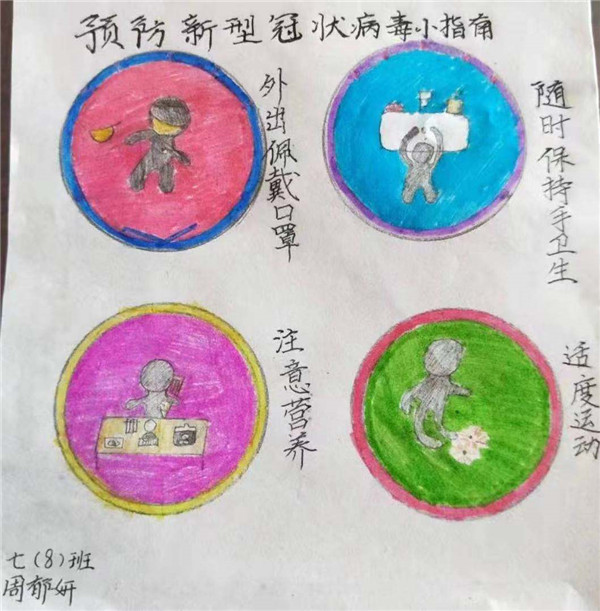 预防新型冠状病毒小指南
外出佩戴口罩
随时保持手卫生
注意营养
适度运动
七(8)班
周郁妍